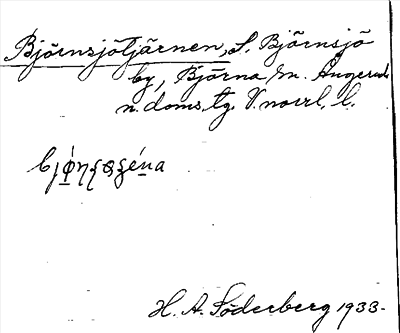 Björnsjötjärnen, S. Björnsjö
by, Björna sn. Ångerm.
n. doms. tg V. norrl. l.
H. A. Söderberg 1933.